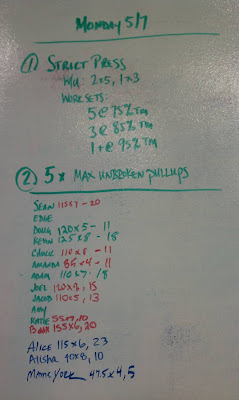 Monday 5/7
① Strict Press
W/U: 2x5, 1x3
Work sets:
5 @ 75% TM
3 @ 85% TM
1+ @ 95% TM
② 5 x Max Unbroken Pullups
Sean 115x7 - 20
Edge
Doug 120x5 - 11
Kevin 125x8 - 18
Chuck 110x8 - 11
Amanda 85x4 - 11
Adam 110x7 - 18
Joel 120x8, 15
Jacob 110x5, 13
Amy
Katie 55x7, 10
155x6, 20
Alice 115x6, 23
Alisha 70x8, 10
47.5x4, 5